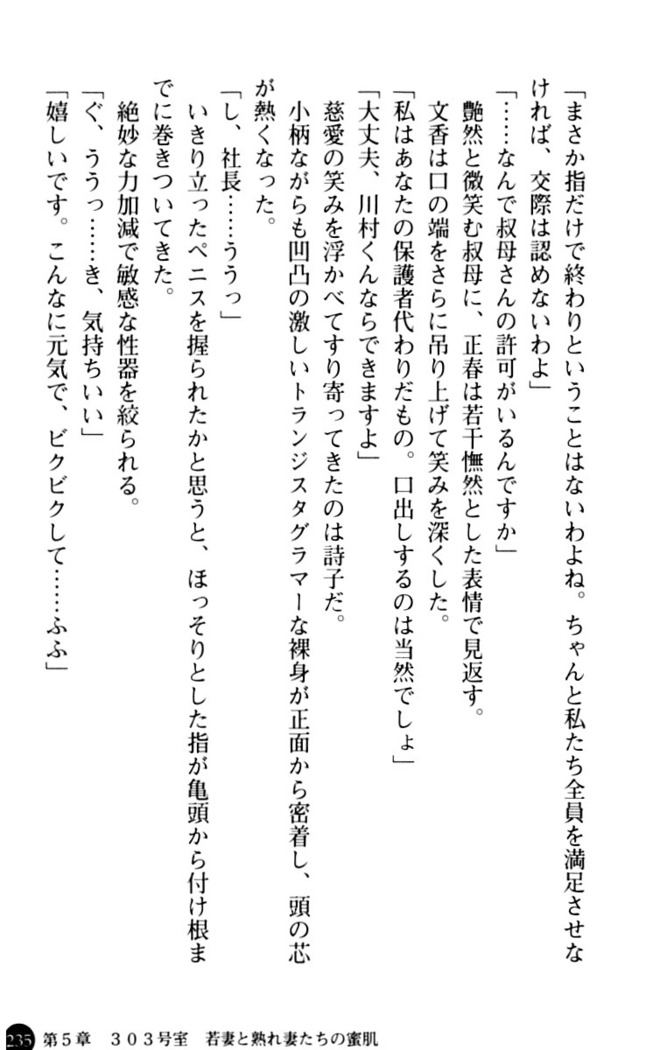 「まさか指だけで終わりということはないわよね。ちゃんと私たち全員を満足させな
ければ、交際は認めないわよ」
「……なんで叔母さんの許可がいるんですか」
艶然と微笑む叔母に、正春は若干憮然とした表情で見返す。
文香は口の端をさらに吊り上げて笑みを深くした。
「私はあなたの保護者代わりだもの。口出しするのは当然でしょ」
「大丈夫、川村くんならできますよ」
慈愛の笑みを浮かべてすり寄ってきたのは詩子だ。
小柄ながらも凹凸の激しいトランジスタグラマーな裸身が正面から密着し、頭の芯
が熱くなった。
「し、社長……ううっ」
いきり立ったペニスを握られたかと思うと、ほっそりとした指が亀頭から付け根ま
でに巻きついてきた。
絶妙な力加減で敏感な性器を絞られる。
「ぐ、ううっ……き、気持ちいい」
「嬉しいです。こんなに元気で、ビクビクして……ふふ」
235 第5章 303号室 若妻と熟れ妻たちの蜜肌